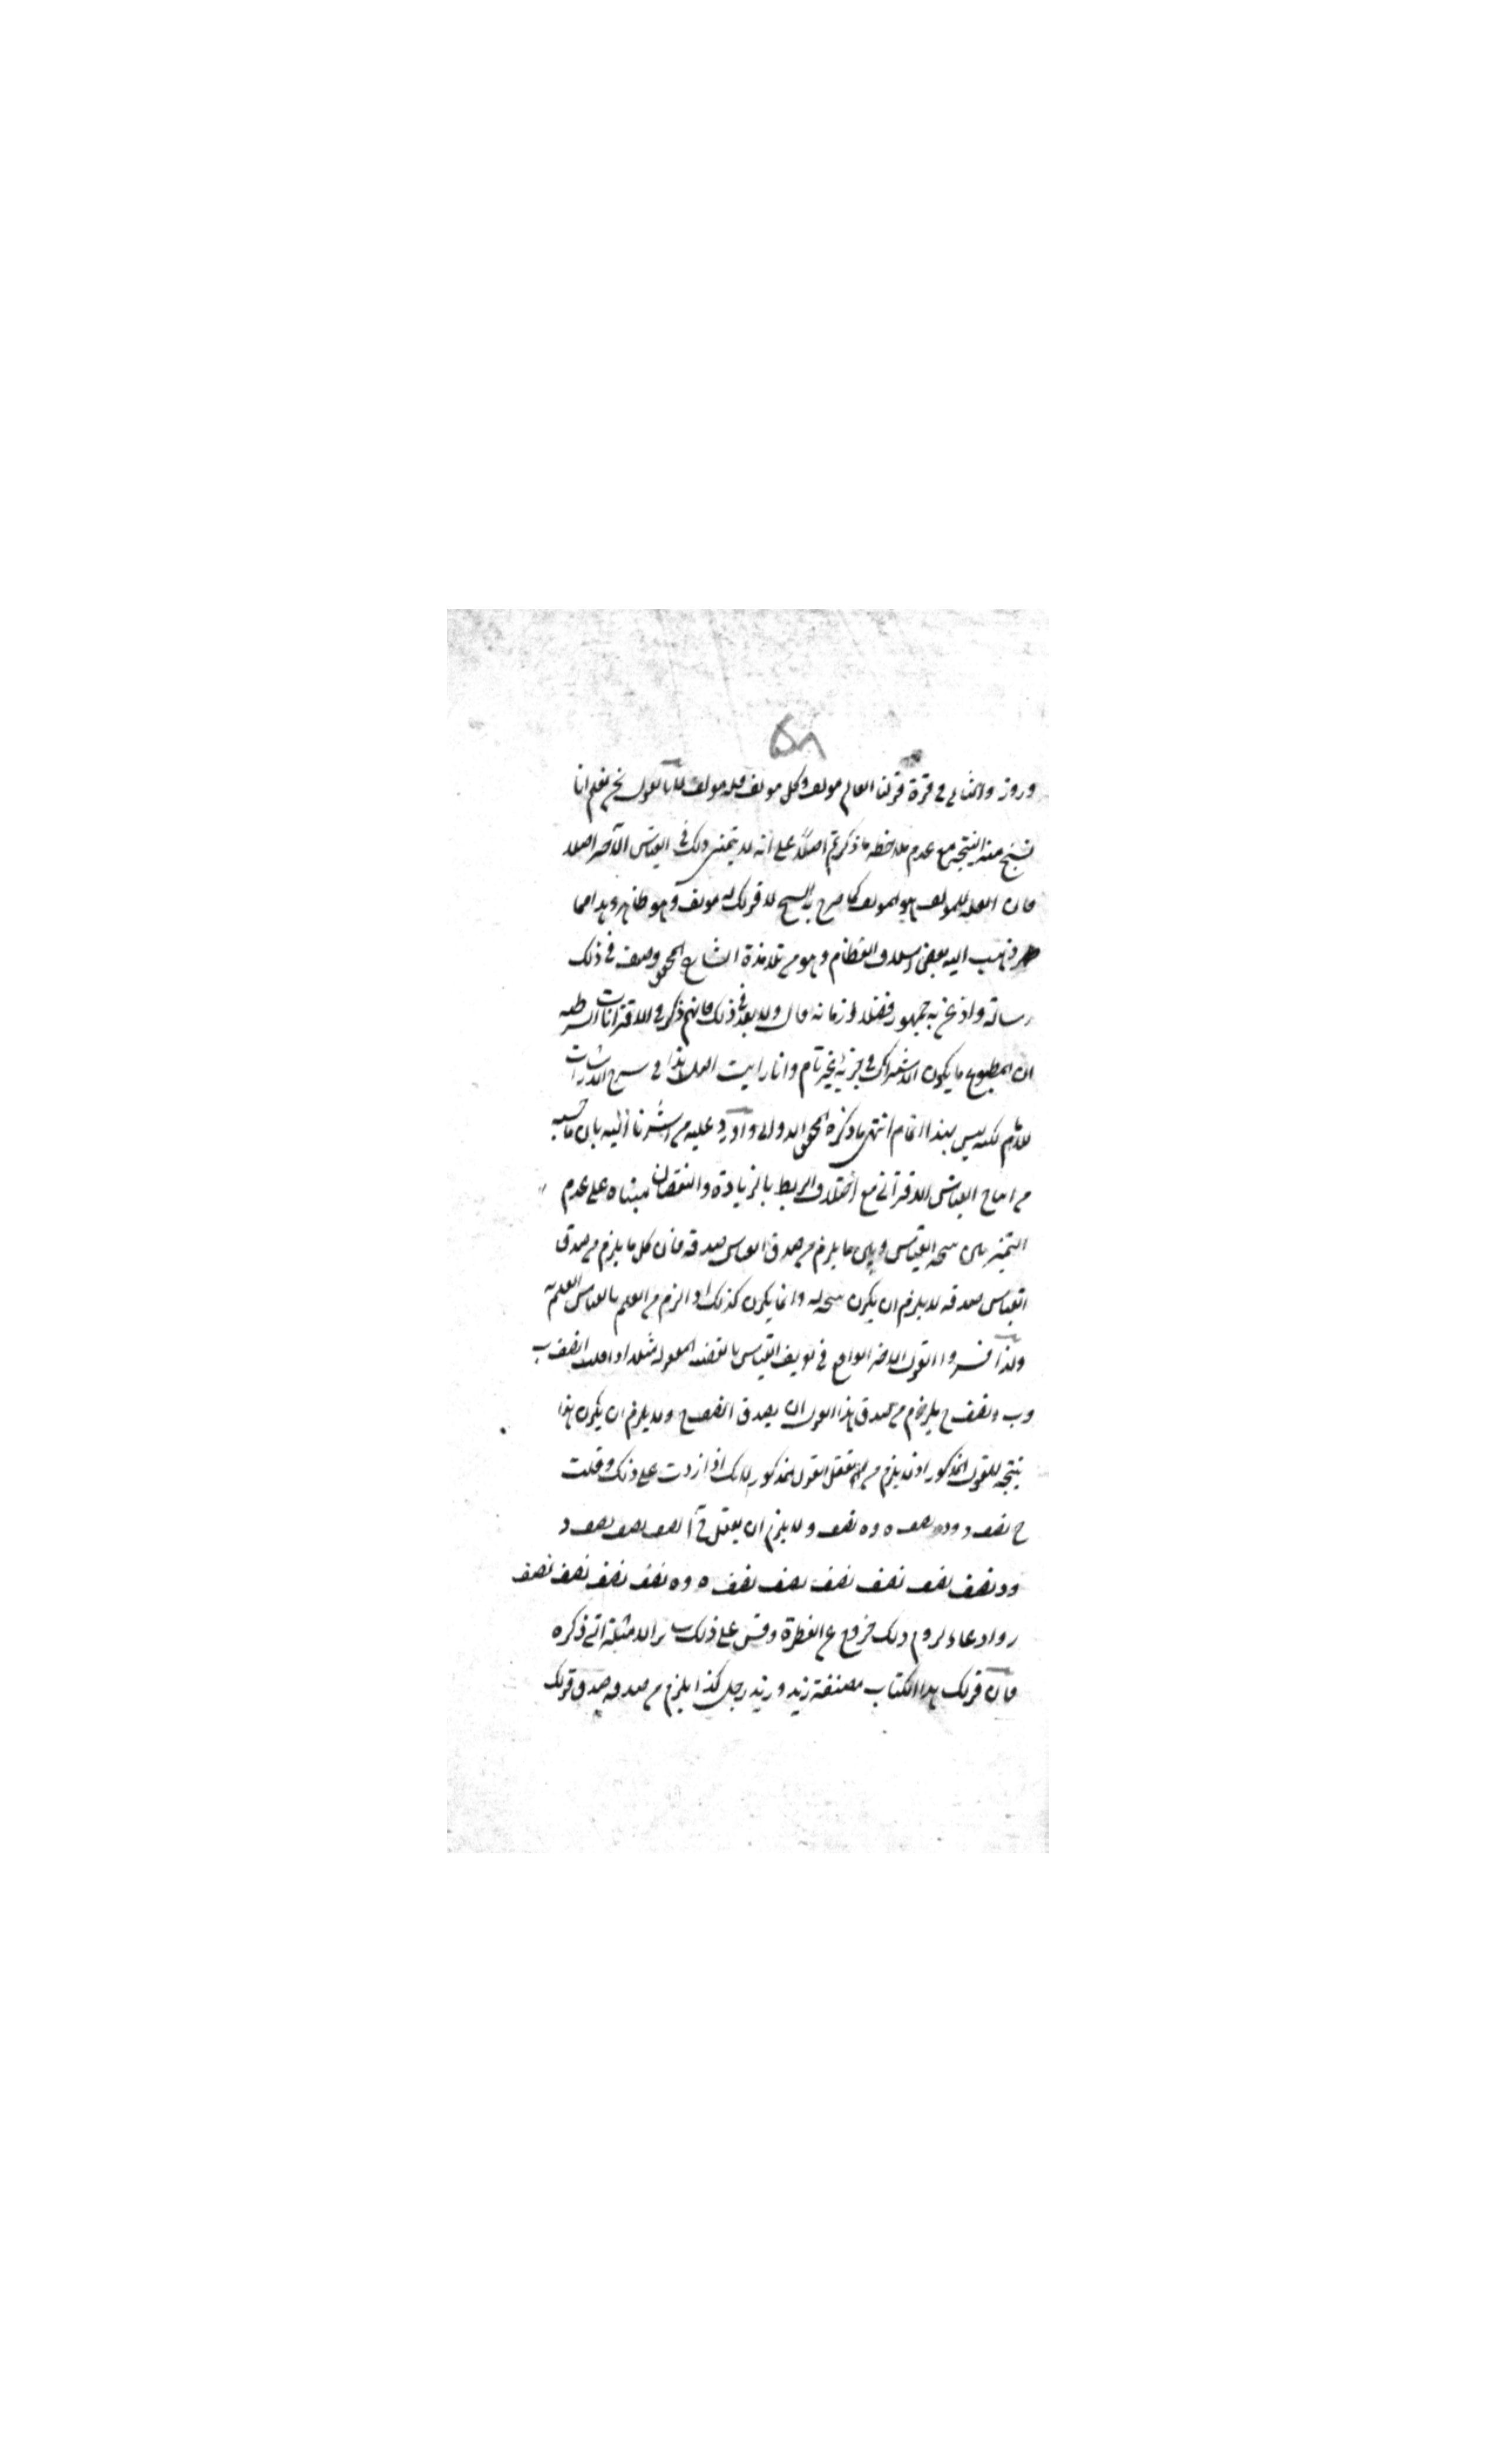 ۵۸
وروز والثانى فى قوة قولنا العالم مولف وكل مولف فله مولف لانا نقول نحن نعلم انا
ننتج منه النتيجة مع عدم ملاحظة ما ذكرتم اصلا على انه لا يتمشى ذلك فى القياس الآخر اصلا
فان العلة للمولف هو المولف كما صرح به الشيخ لا قولك له مولف وهو ظاهر وهذا مما
ذهب اليه بعض اسلاف العظام وهو من تلامذة الشارح المحقق وصنف فى ذلك
رسالة واذعن به جمهور فضلاء زمانه قال ولا بعد فى ذلك فانهم ذكروا فى الاقترانات الشرطية
ان المطبوع ما يكون الاشتراك فى جزء غير تام وانا رايت العلامة هذا فى شرح الاشارات
للامام لكنه ليس بهذا التمام انتهى ما ذكره المحقق الدوانى واورد عليه من اشرنا اليه بان ما حسبه
من انتاج القياس الاقترانى مع اختلاف الربط بالزيادة والنقصان مبناه على عدم
التميز بين نتيجة القياس وبين ما يلزم من صدق القياس صدقه فان كل ما يلزم من صدق
القياس صدقه لا يلزم ان يكون نتيجة له وانما يكون كذلك اذا لزم من العلم بالقياس العلم به
ولذا فسروا القول اللازم الواقع فى تعريف القياس بالقضية المعقولة مثلا اذا قلت ا نصف ب
وب نصف ج يلزم من صدق هذا القول ان يصدق ا نصف ج ولا يلزم ان يكون هذا
نتيجة للقول المذكور اذ لا يلزم من تعقل القول المذكور لانك اذا زدت على ذلك وقلت
ج نصف د ود نصف ه وه نصف و لا يلزم ان يعقل ح ا نصف نصف نصف د
ود نصف نصف نصف نصف نصف نصف ه وه نصف نصف نصف نصف
ر وادعاء لزوم ذلك خروج عن الفطرة وقس على ذلك سائر الامثلة التى ذكره
فان قولك هذا الكتاب مصنفه زيد وزيد رجل كذا يلزم من صدقه صدق قولك